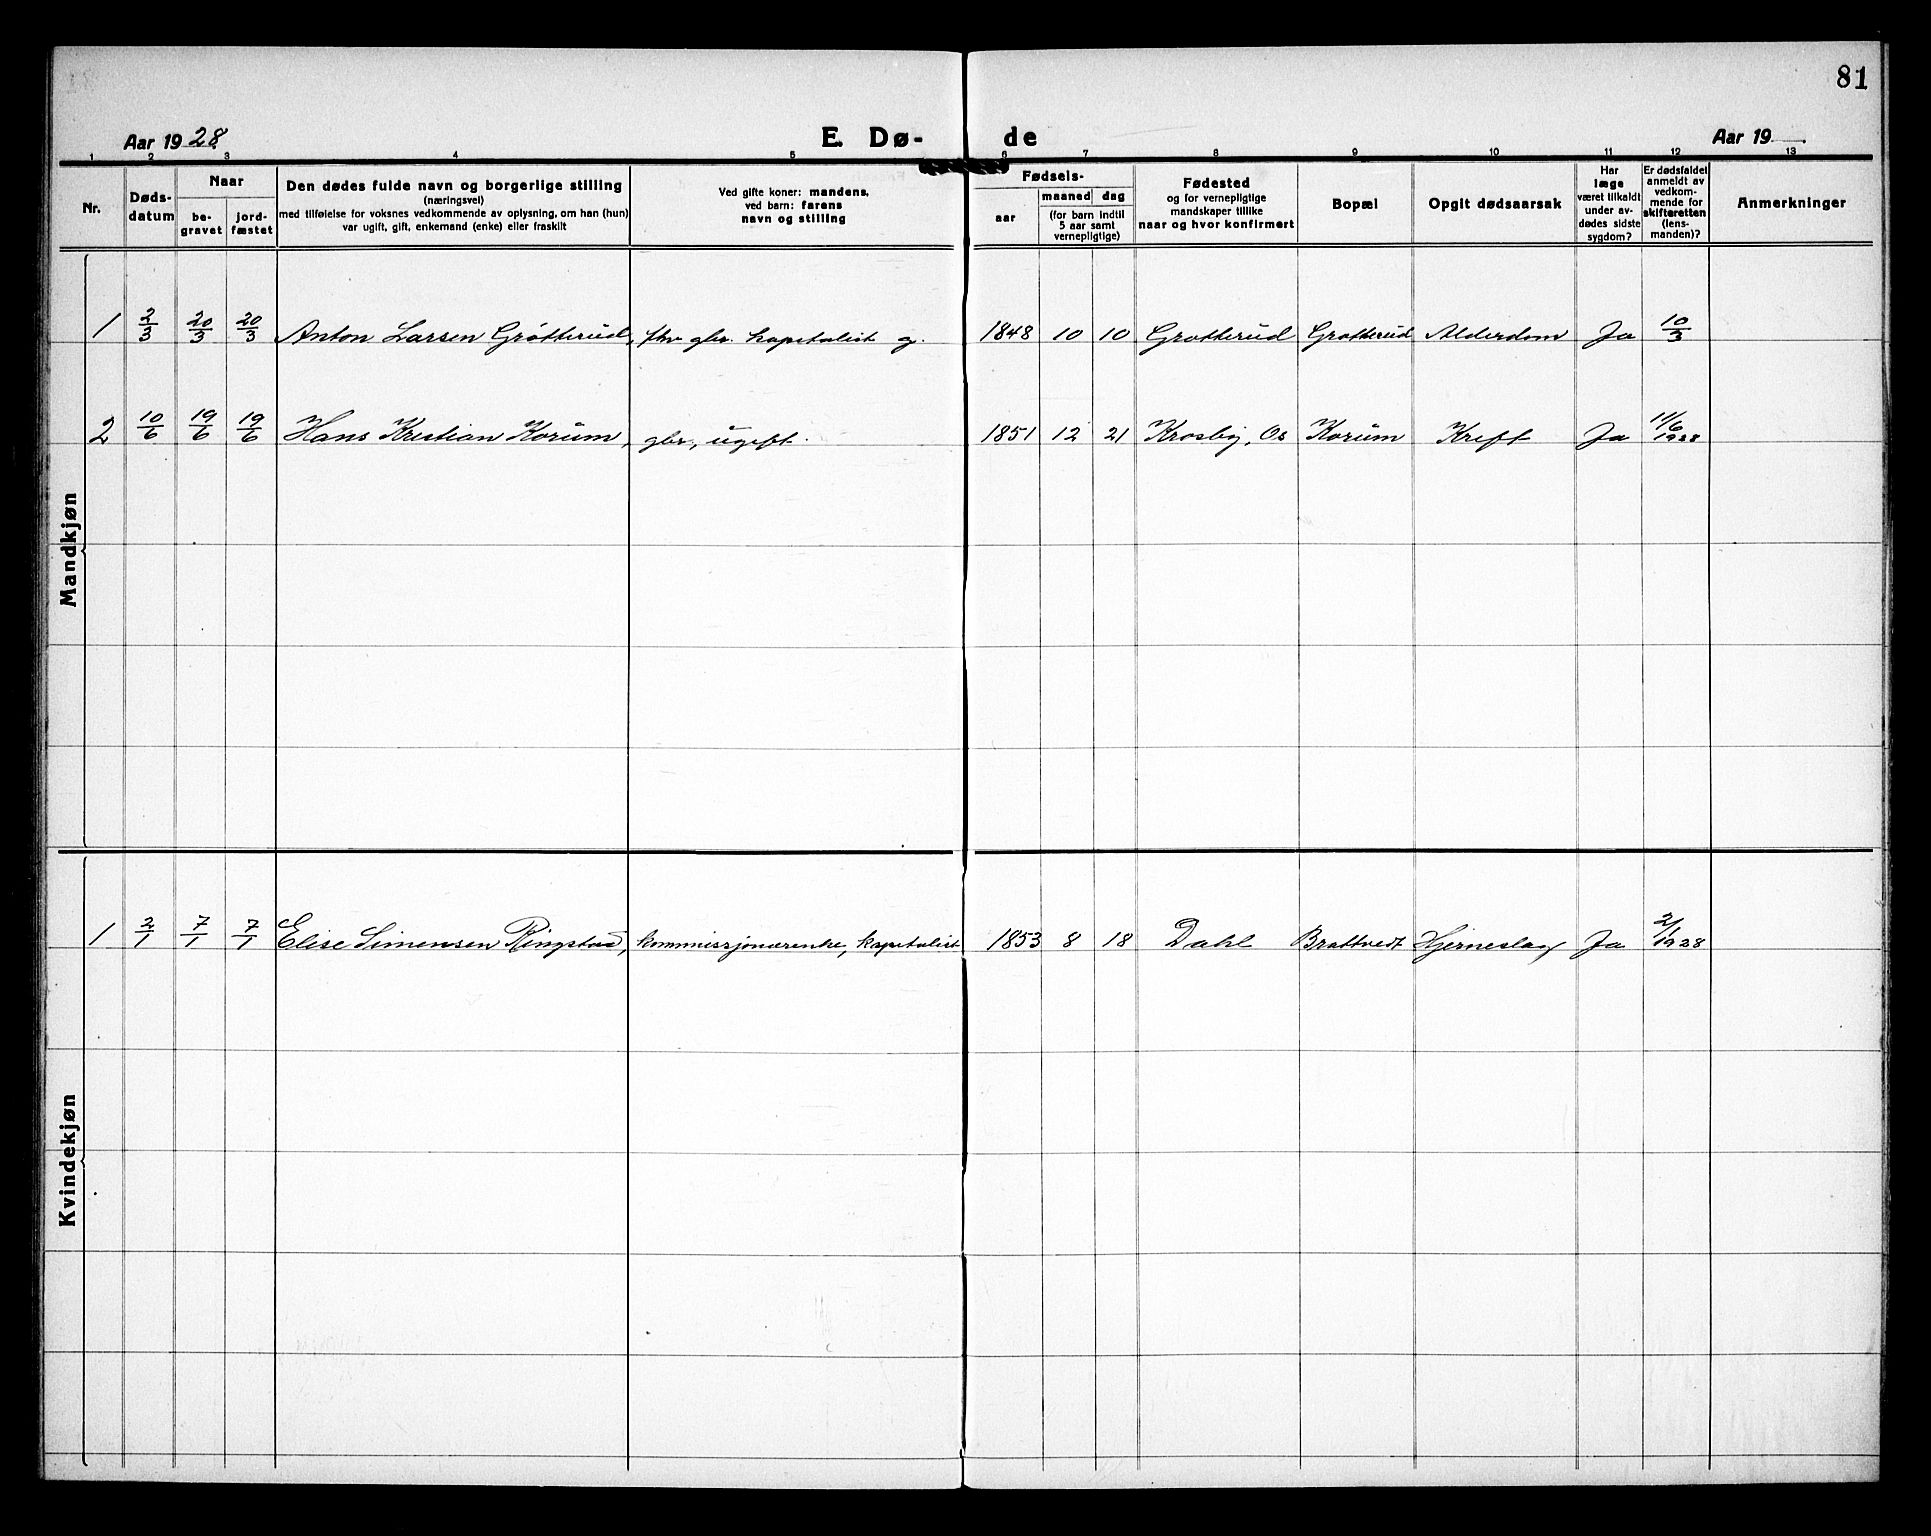 81
Aar 1928
E. Dø-
de
Aar 19
1 2 3 4 5 6 7 8 9 10 11 12 13
Nr.
Døds-
datum
Naar
be-
gravet
jord-
fæstet
Den dødes fulde navn og borgerlige stilling
(næringsvei)
med tilføielse for voksnes vedkommende av oplysning, om han (hun)
var ugift, gift, enkemand (enke) eller fraskilt
Ved gifte koner: mandens,
ved barn: farens
navn og stilling
Fødsels-
aar
maaned dag
(for barn indtil
5 aar samt
vernepligtige)
Fødested
og for vernepligtige
mandskaper tillike
naar og hvor konfirmert
Bopæl
Opgit dødsaarsak
Har
læge
været tilkaldt
under av-
dødes sidste
sygdom?
Er dødsfaldet
anmeldt av
vedkom-
mende for
skifteretten
(lens-
manden)?
Anmerkninger
Mandkjøn
1 2/3 20/3 20/3 Anton Larsen Grøtterud, fhv gbr. kapitalist g. 1848 10 10 Grøtterud Grøtterud Alderdom Ja 10/3
2 10/6 19/6 19/6 Hans Kristian Korum, gbr., ugift. 1851 12 21 Krosby, Os Korum Kreft Ja 11/6 1928
Kvindekjøn
1 2/1 7/1 7/1 Elise Simensen Ringstad, kommissjonærenke, kapitalist 1853 8 18 Dahl Brattvedt Hjerneslag Ja 2/1 1928